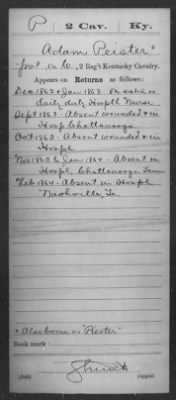 P | 2 Cav. | Ky.
Adam Peister *
Co. , 2 Reg't Kentucky Cavalry.
Appears on Returns as follows:
Dec 1862 & Jan 1863 On extra or
daily duty Hosptl Nurse
Sept 1863 - Absent wounded & in
Hosp Chattanooga
Oct 1863 - Absent wounded & in
Hospl
Nov 1863 to Jan 1864 - Absent in
Hospl, Chattanooga Tenn
Feb 1864 - Absent in Hospl
Nashville, Te
* Also borne as "Reister"
Book mark:
Copyist.